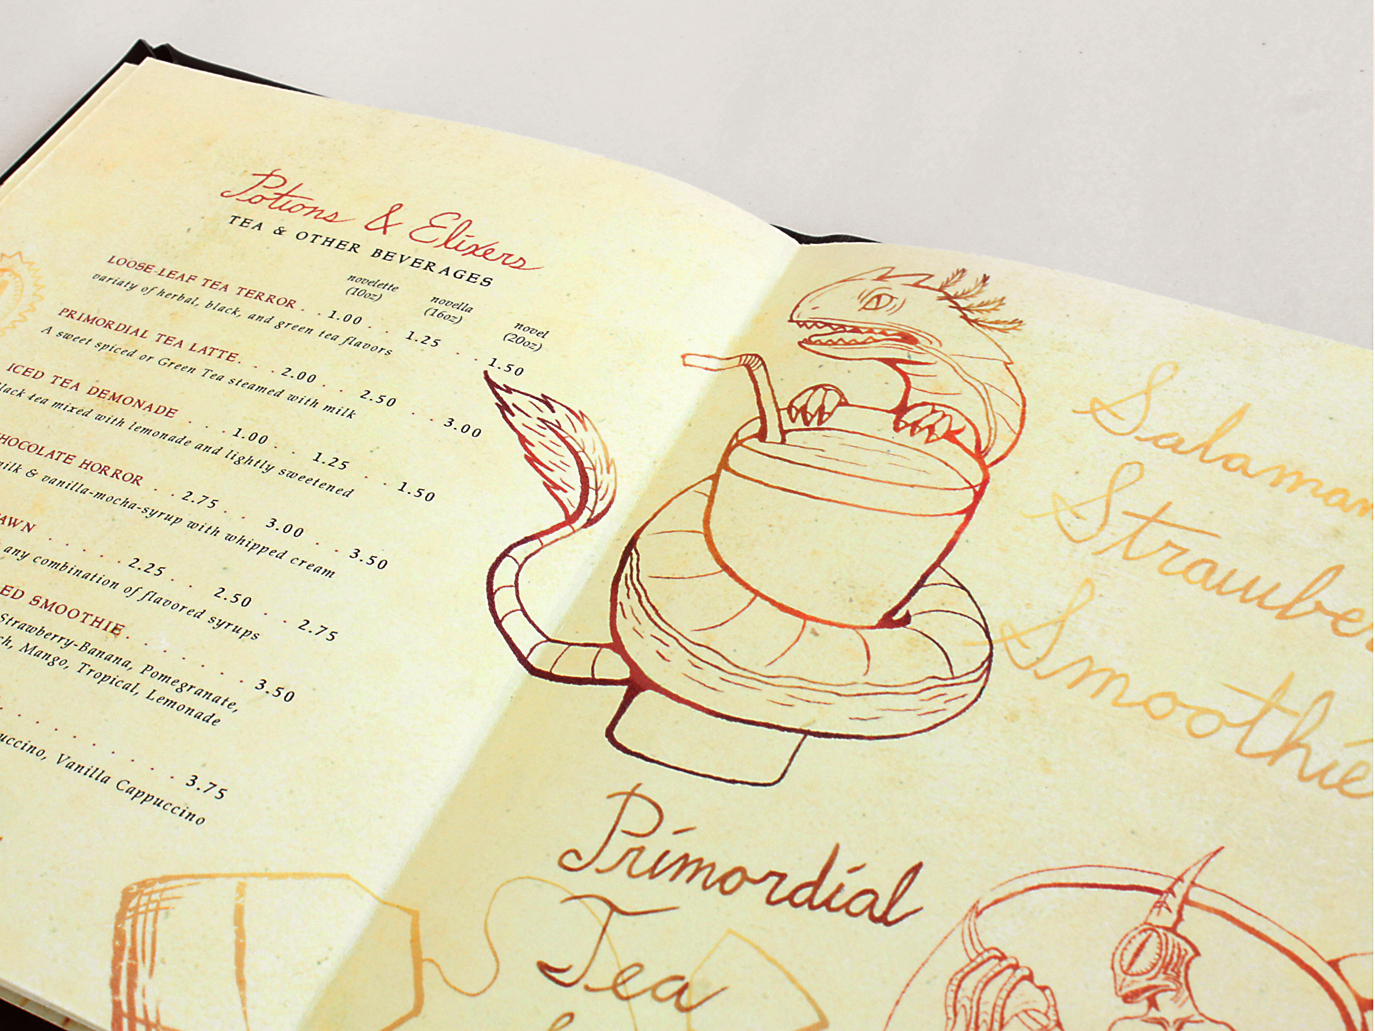 Potions & Elixers
TEA & OTHER BEVERAGES
novelette novella novel
(10oz) (16oz) (20oz)
LOOSE-LEAF TEA TERROR . . 1.00 . . 1.25 . . 1.50
variaty of herbal, black, and green tea flavors
PRIMORDIAL TEA LATTE. . . 2.00 . . 2.50 . . 3.00
A sweet spiced or Green Tea steamed with milk
ICED TEA DEMONADE . . . 1.00 . . 1.25 . . 1.50
lack tea mixed with lemonade and lightly sweetened
HOCOLATE HORROR . . 2.75 . . 3.00 . . 3.50
milk & vanilla-mocha-syrup with whipped cream
AWN . . . . . . 2.25 . . 2.50 . . 2.75
any combination of flavored syrups
ED SMOOTHIE. . . . . . . 3.50
Strawberry-Banana, Pomegranate,
ch, Mango, Tropical, Lemonade
. . . . . . . . . 3.75
uccino, Vanilla Cappuccino
Salaman
Strawber
Smoothie
Primordial
Tea